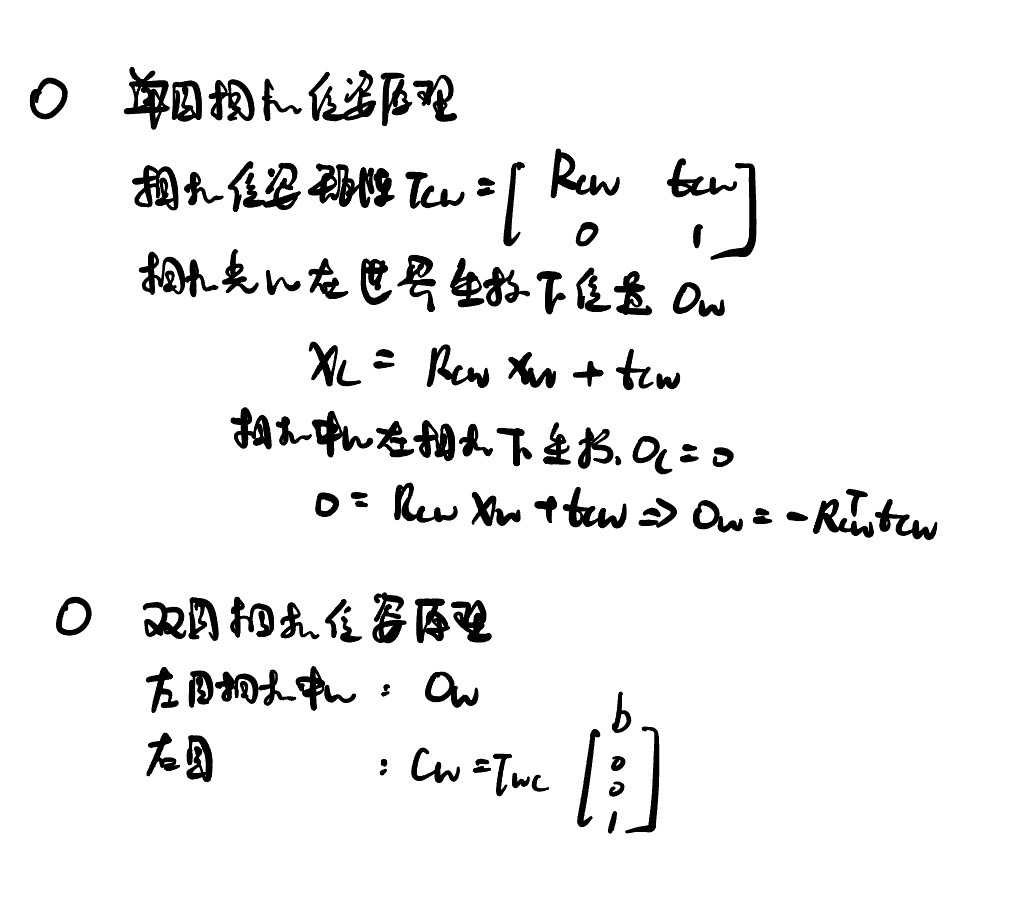 O 单目相机位姿原理
相机位姿矩阵 Tcw = [ Rcw tcw
0 1 ]
相机光心在世界坐标下位置 Ow
Xc = Rcw Xw + tcw
相机中心在相机下坐标. Oc = 0
0 = Rcw Xw + tcw ⇒ Ow = -Rcw^T tcw
O 双目相机位姿原理
左目相机中心 : Ow
右目 : Cw = Twc [ b
0
0
1 ]